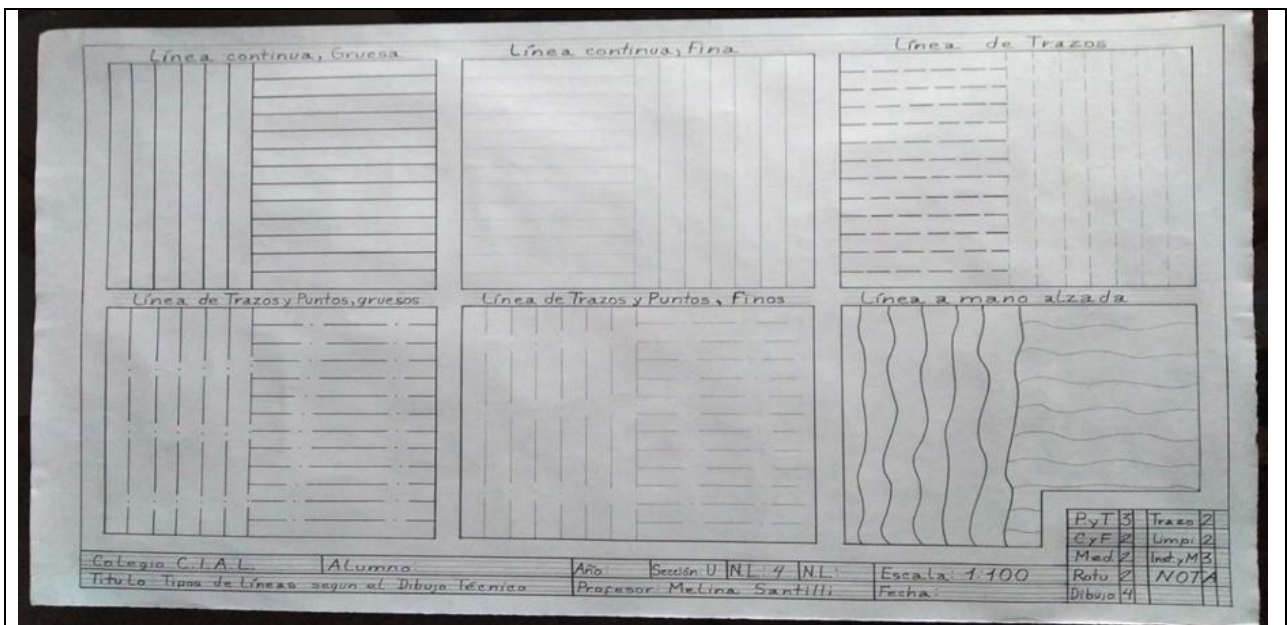 Línea continua, Gruesa
Línea continua, Fina
Línea de Trazos
Línea de Trazos y Puntos, gruesos
Línea de Trazos y Puntos, Finos
Línea a mano alzada
P.yT 3 Trazo 2
C y F 2 Limpi 2
Med. 2 Inst.yM 3
Rotu 2 NOTA
Dibujo 4
Colegio C.I.A.L. Alumno: Año: Sección: U N.L.: 4 N.L.: Escala: 1:100
Título Tipos de Líneas segun el Dibujo Técnico Profesor: Melina Santilli Fecha: